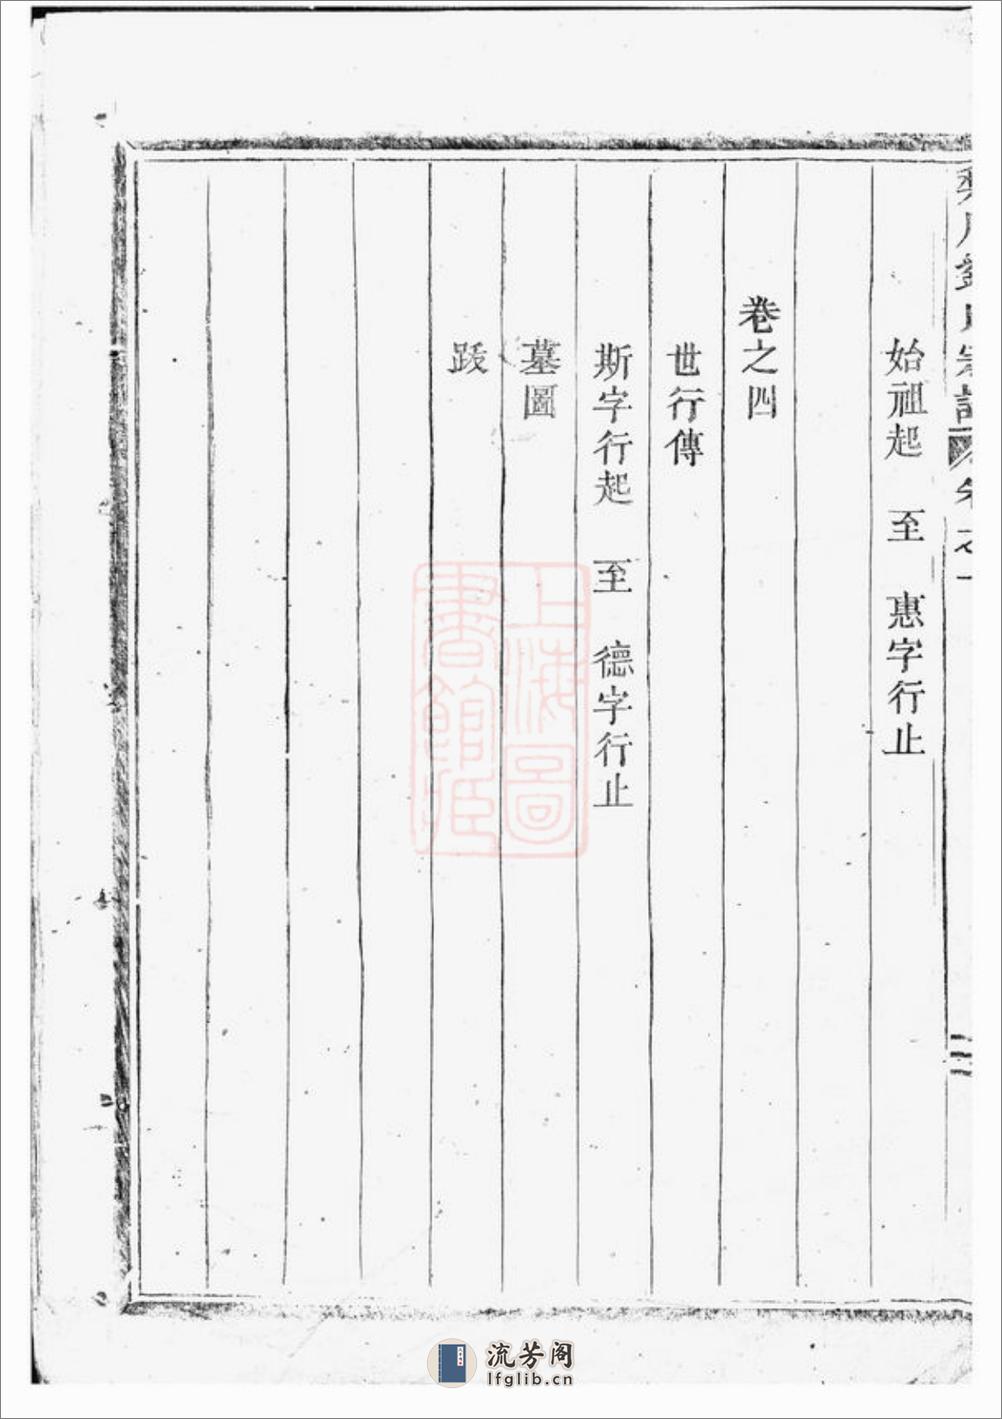 始祖起 至 惠字行止
卷之四
世行傳
斯字行起 至 德字行止
墓圖
跋
上海圖
書館藏
流芳阁
lfglib.cn